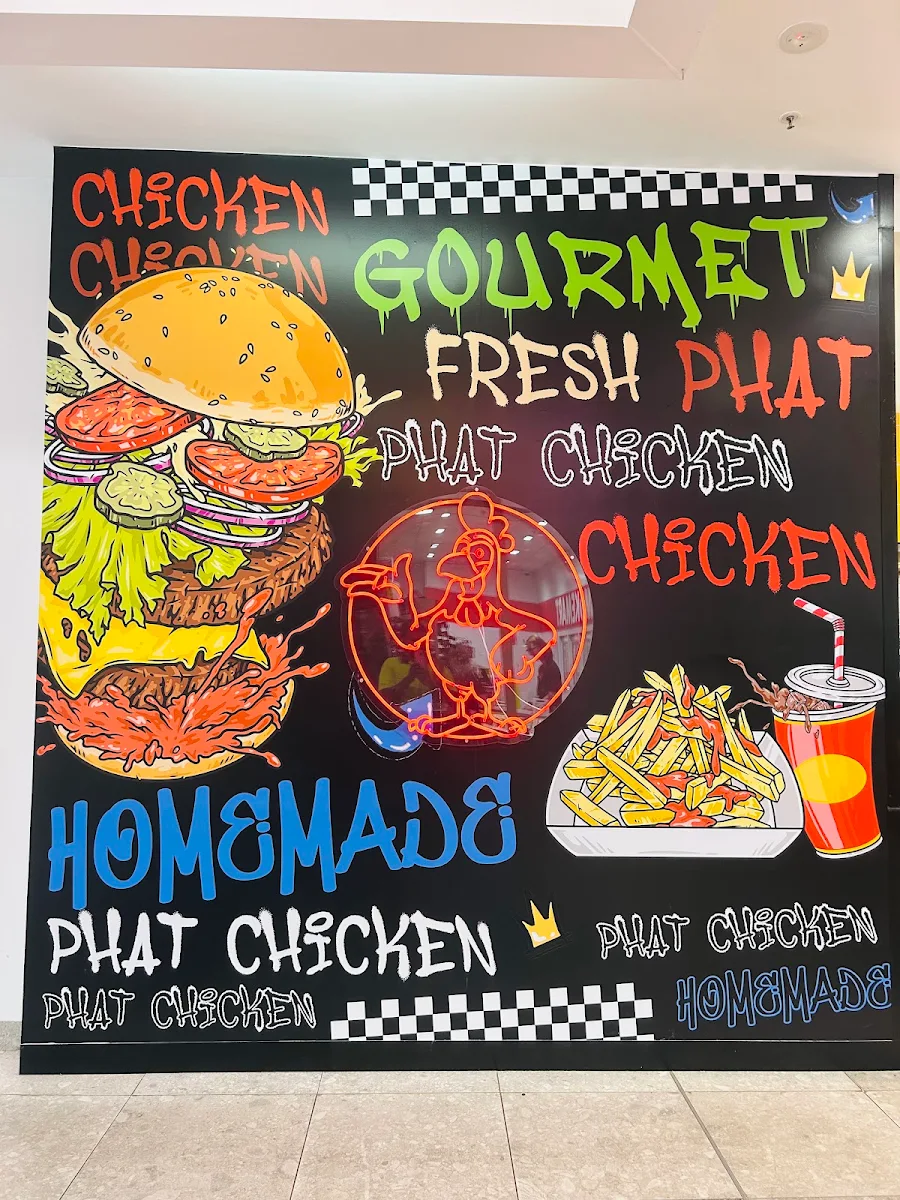 CHiCKEN
CHiCKEN
GOURMET
FRESH PHAT
PHAT CHiCKEN
CHiCKEN
HOMEMADE
PHAT CHiCKEN
PHAT CHiCKEN
PHAT CHiCKEN
HOMEMADE